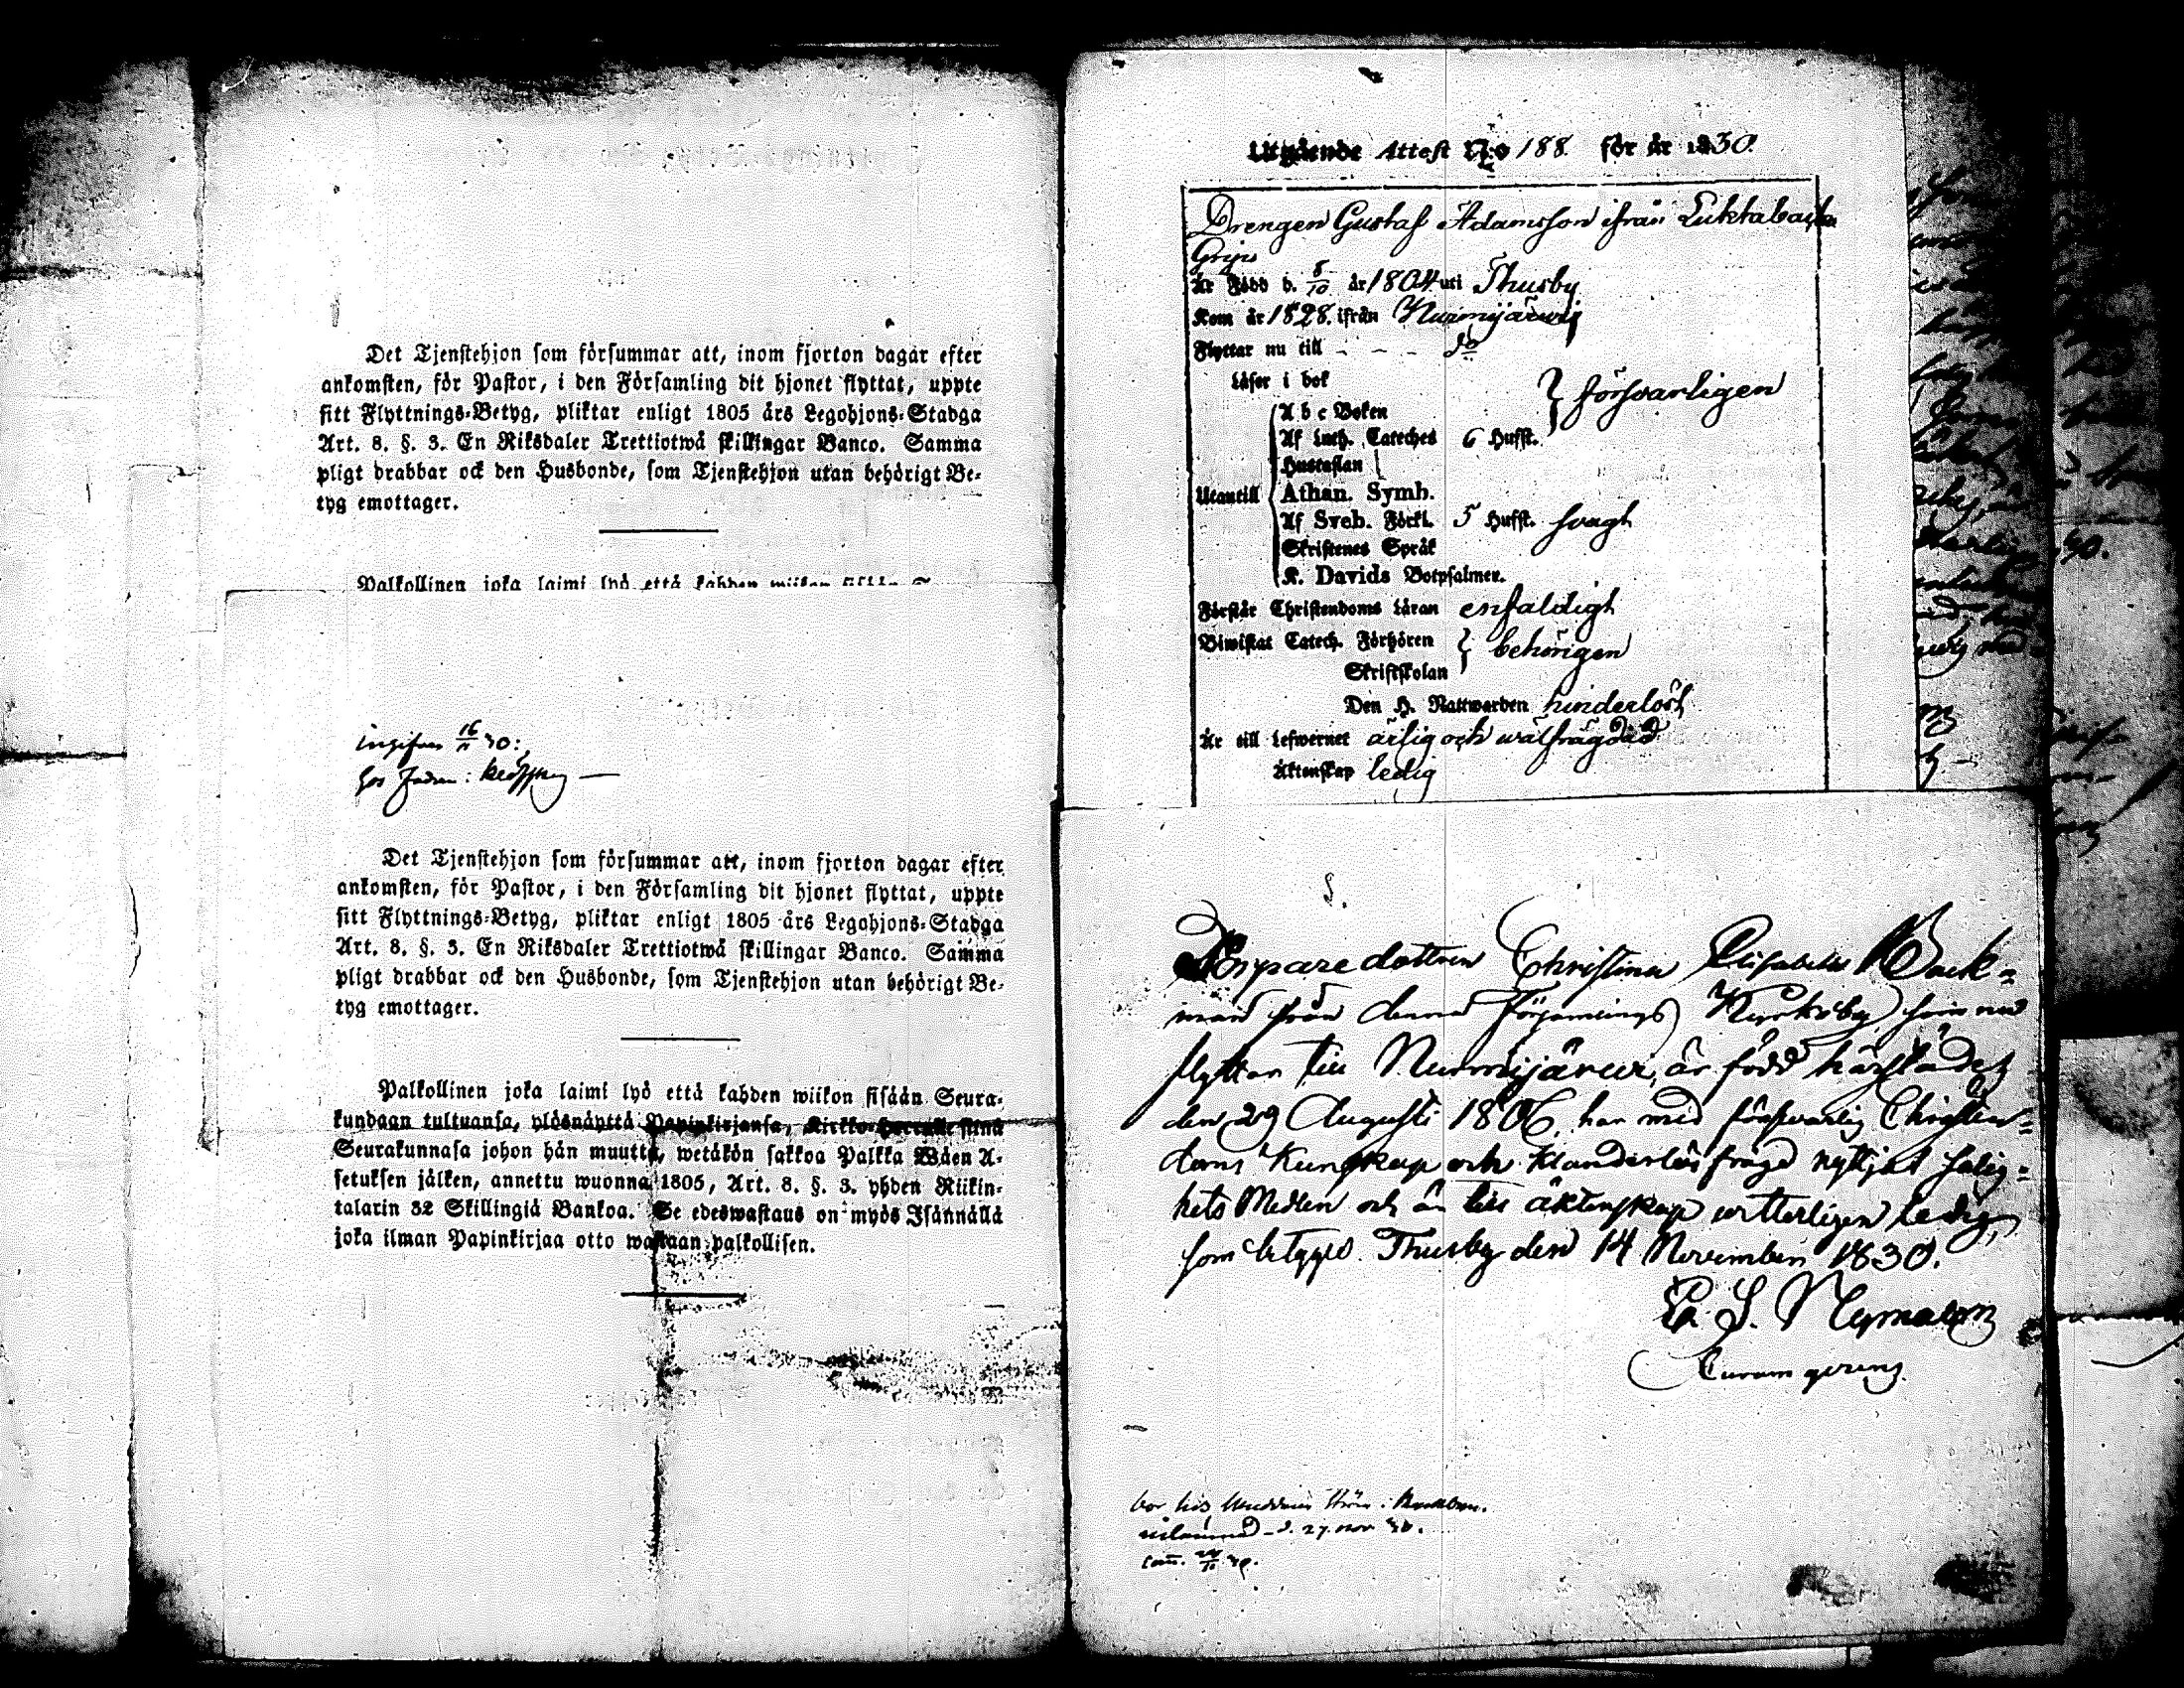 Det Tjenstehjon som försummar att, inom fjorton dagar efter
ankomsten, för Pastor, i den Församling dit hjonet flyttat, uppte
sitt Flyttnings-Betyg, pliktar enligt 1805 års Legohjons-Stadga
Art. 8. §. 3. En Riksdaler Trettiotwå skillingar Banco. Samma
pligt drabbar ock den Husbonde, som Tjenstehjon utan behörigt Be-
tyg emottager.
Palkollinen joka laimi lyö että kahden wiikon sisään
ingifven 16/11 30:
Det Tjenstehjon som försummar att, inom fjorton dagar efter
ankomsten, för Pastor, i den Församling dit hjonet flyttat, uppte
sitt Flyttnings-Betyg, pliktar enligt 1805 års Legohjons-Stadga
Art. 8. §. 3. En Riksdaler Trettiotwå skillingar Banco. Samma
pligt drabbar ock den Husbonde, som Tjenstehjon utan behörigt Be-
tyg emottager.
Palkollinen joka laimi lyö että kahden wiikon sisään Seura-
kundaan tultuansa, ylösnäyttä Papinkirjansa, Kirkko-Herralle siinä
Seurakunnasa johon hän muutta, wetäkön sakkoa Palkka Wäen A-
setuksen jälken, annettu wuonna 1805, Art. 8. §. 3. yhden Riikin-
talarin 32 Skillingiä Bankoa. Se edeswastaus on myös Isännällä
joka ilman Papinkirjaa otto wastaan palkollisen.
Utgående Attest No 188. för år 1830.
Drengen Gustaf Adamsson ifrån Luktabacka
Grips
Är Född d. 5/10 år 1804 uti Thusby
Kom år 1828. ifrån Nurmijärwi
Flyttar nu till - - - do
Läser i bok } försvarligen
A b c Boken
Af Luth. Cateches 6 Hufst.
Hustaflan
Utantill Athan. Symb.
Af Sveb. Förkl. 5 Hufst. svagt
Skriftenes Språk
K. Davids Botpsalmer.
Förstår Christendoms Läran enfaldigt
Biwistat Catech. Förhören } behörigen
Skriftskolan
Den H. Nattwarden hinderlöst
Är till Lefwernet ärlig och wälfrägdad
Äktenskap ledig
dottren Christina Elisabeth Back-
man från denna Församlings Kyrkoby som nu
flyttar till Nurmijärwi, är född härstädes
den 29 Augusti 1806, har med försvarlig Christen-
doms Kunskap och Klanderlös frägd nyttjat salig-
hets Medlen och är till äktenskap veterligen ledig,
som betygas. Thusby den 14 November 1830.
E. J. Nyman
Curam gerens.
bor hos
d. 27. nov 30.